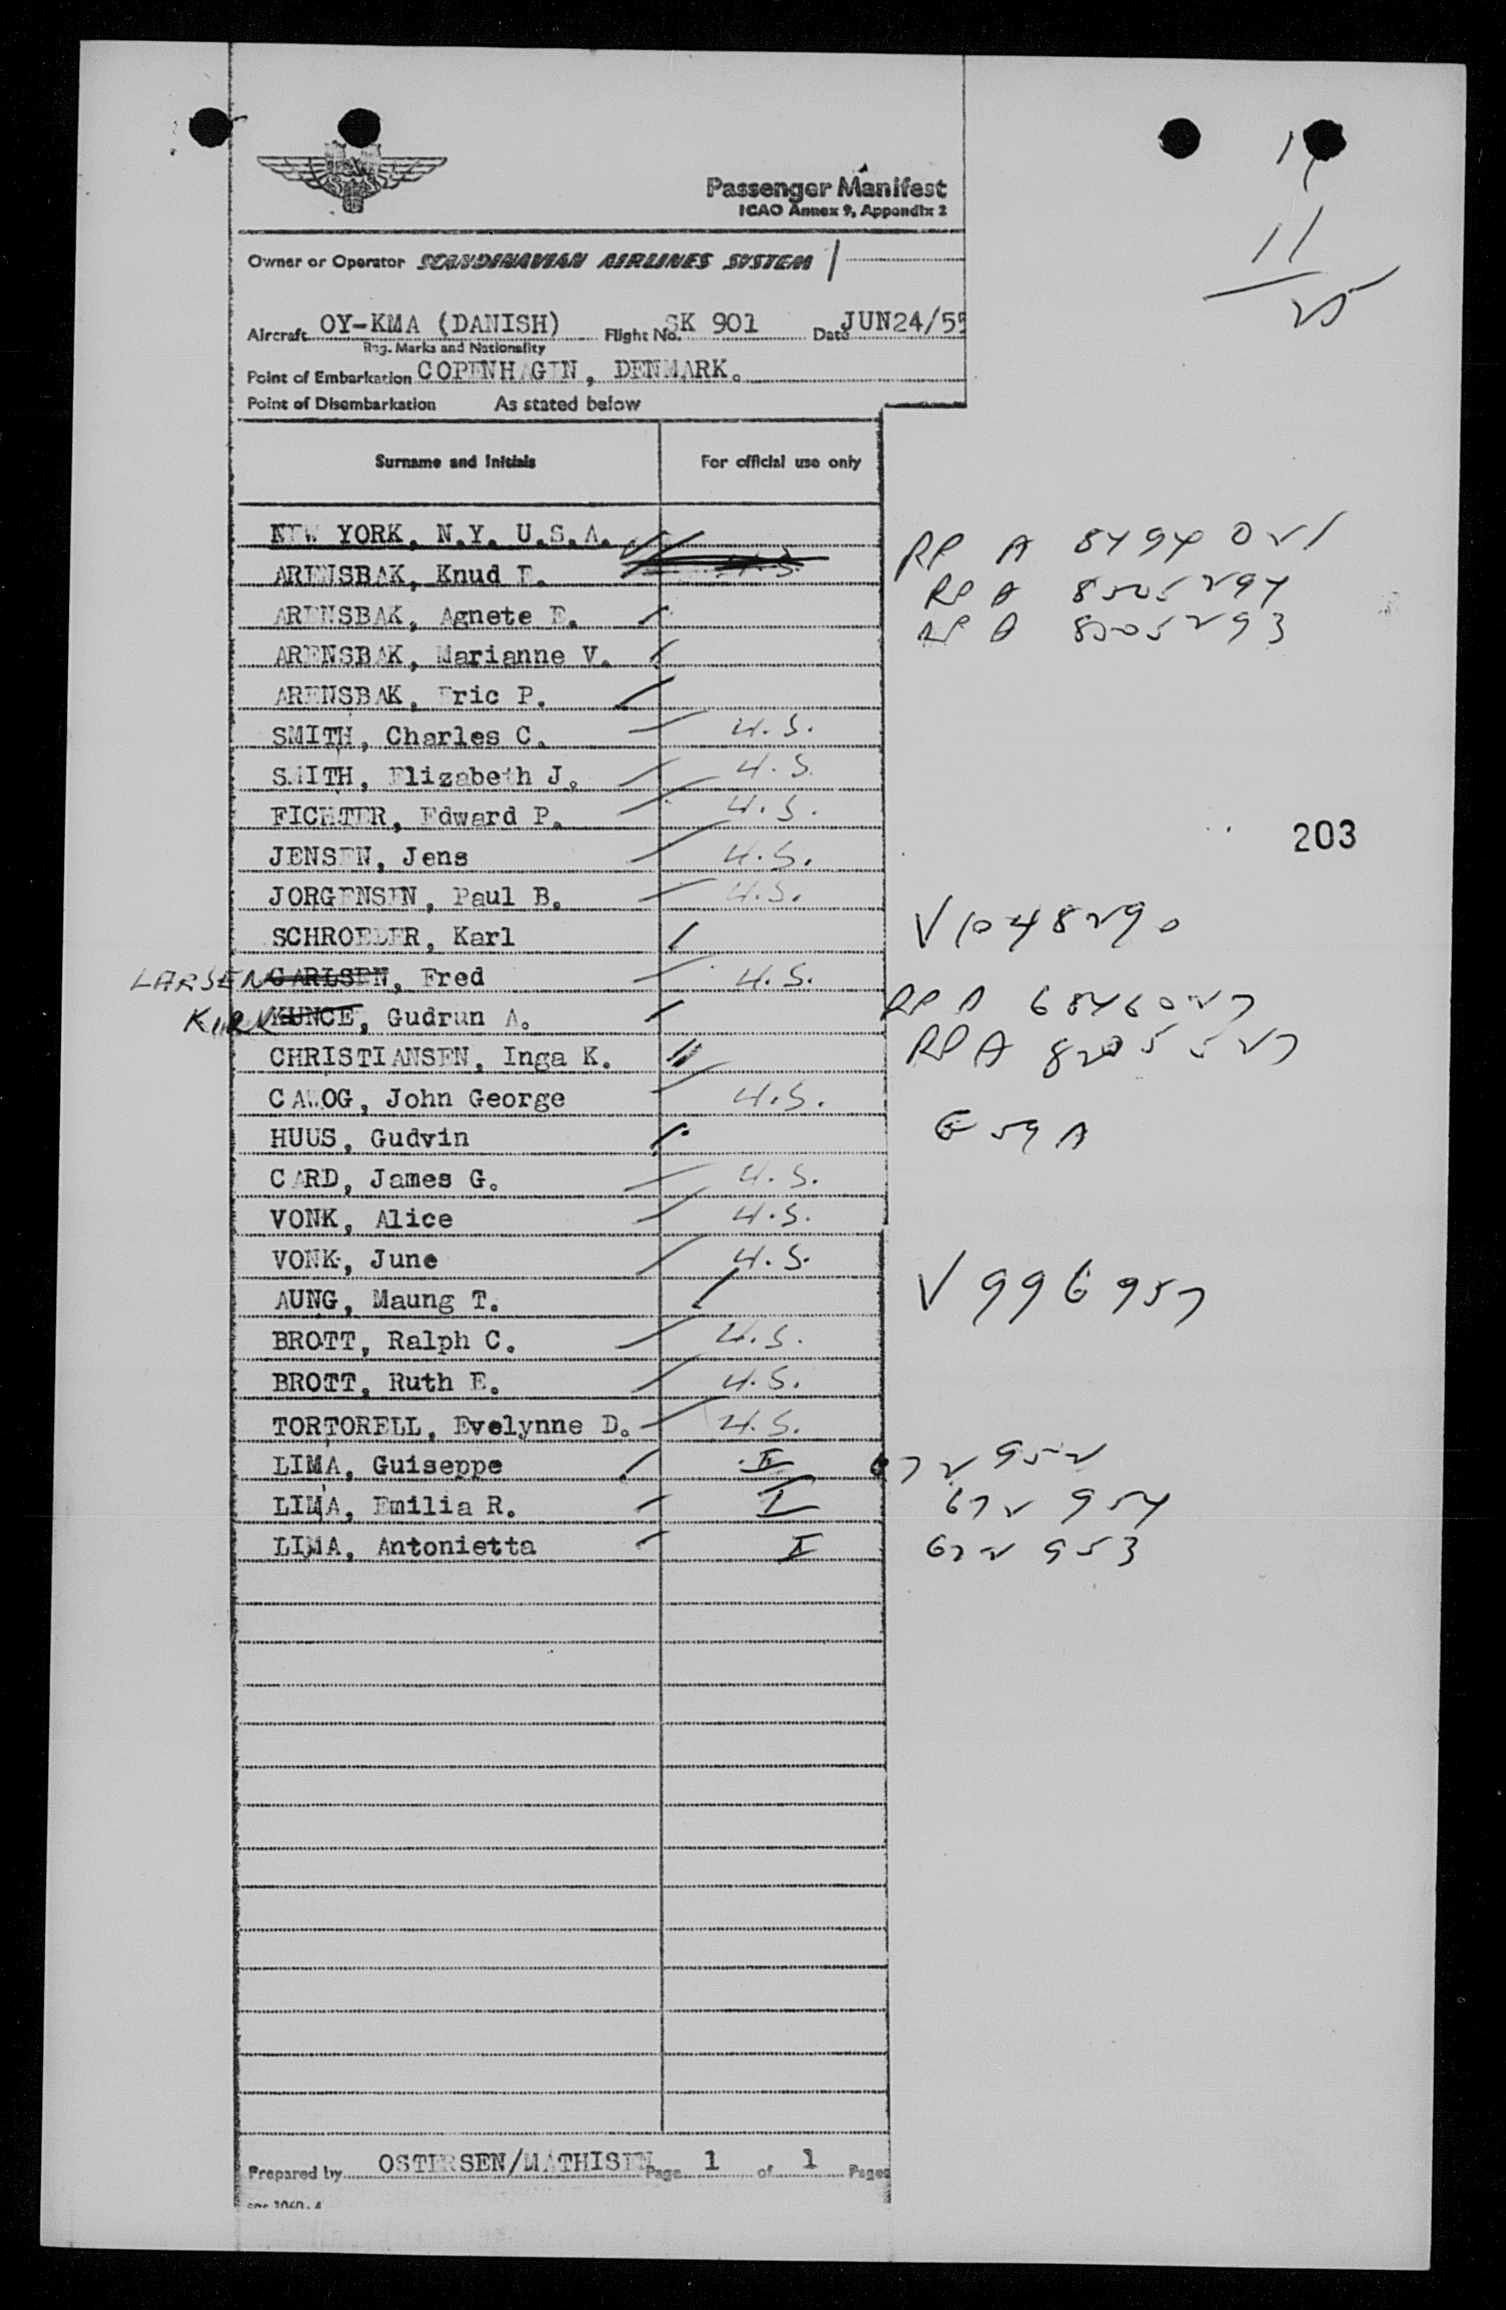 Passenger Manifest
ICAO Annex 9, Appendix 2
11
25
Owner or Operator SCANDINAVIAN AIRLINES SYSTEM
Aircraft OY-KMA (DANISH) Flight No. SK 901 Date JUN24/55
Reg. Marks and Nationality
Point of Embarkation COPENHAGEN, DENMARK.
Point of Disembarkation As stated below
Surname and Initials For official use only
NEW YORK, N.Y. U.S.A.
ARENSBAK, Knud E. U.S. RP A
ARENSBAK, Agnete E. RP A 8505294
ARENSBAK, Marianne V. RP A 8505293
ARENSBAK, Eric P.
SMITH, Charles C. U.S.
SMITH, Elizabeth J. U.S.
FICHTER, Edward P. U.S.
203
JENSEN, Jens U.S.
JORGENSEN, Paul B. U.S.
SCHROEDER, Karl V1048290
LARSEN CARLSEN, Fred U.S.
KIRK KUNCE, Gudrun A. RP A 6846027
CHRISTIANSEN, Inga K. RP A 8205527
CAWOG, John George U.S.
HUUS, Gudvin G 59 A
CARD, James G. U.S.
VONK, Alice U.S.
VONK, June U.S.
AUNG, Maung T. V 996957
BROTT, Ralph C. U.S.
BROTT, Ruth E. U.S.
TORTORELL, Evelynne D. U.S.
LIMA, Guiseppe I 672952
LIMA, Emilia R. I 672954
LIMA, Antonietta I 672953
Prepared by OSTERSEN/MATHISEN Page 1 of 1 Pages